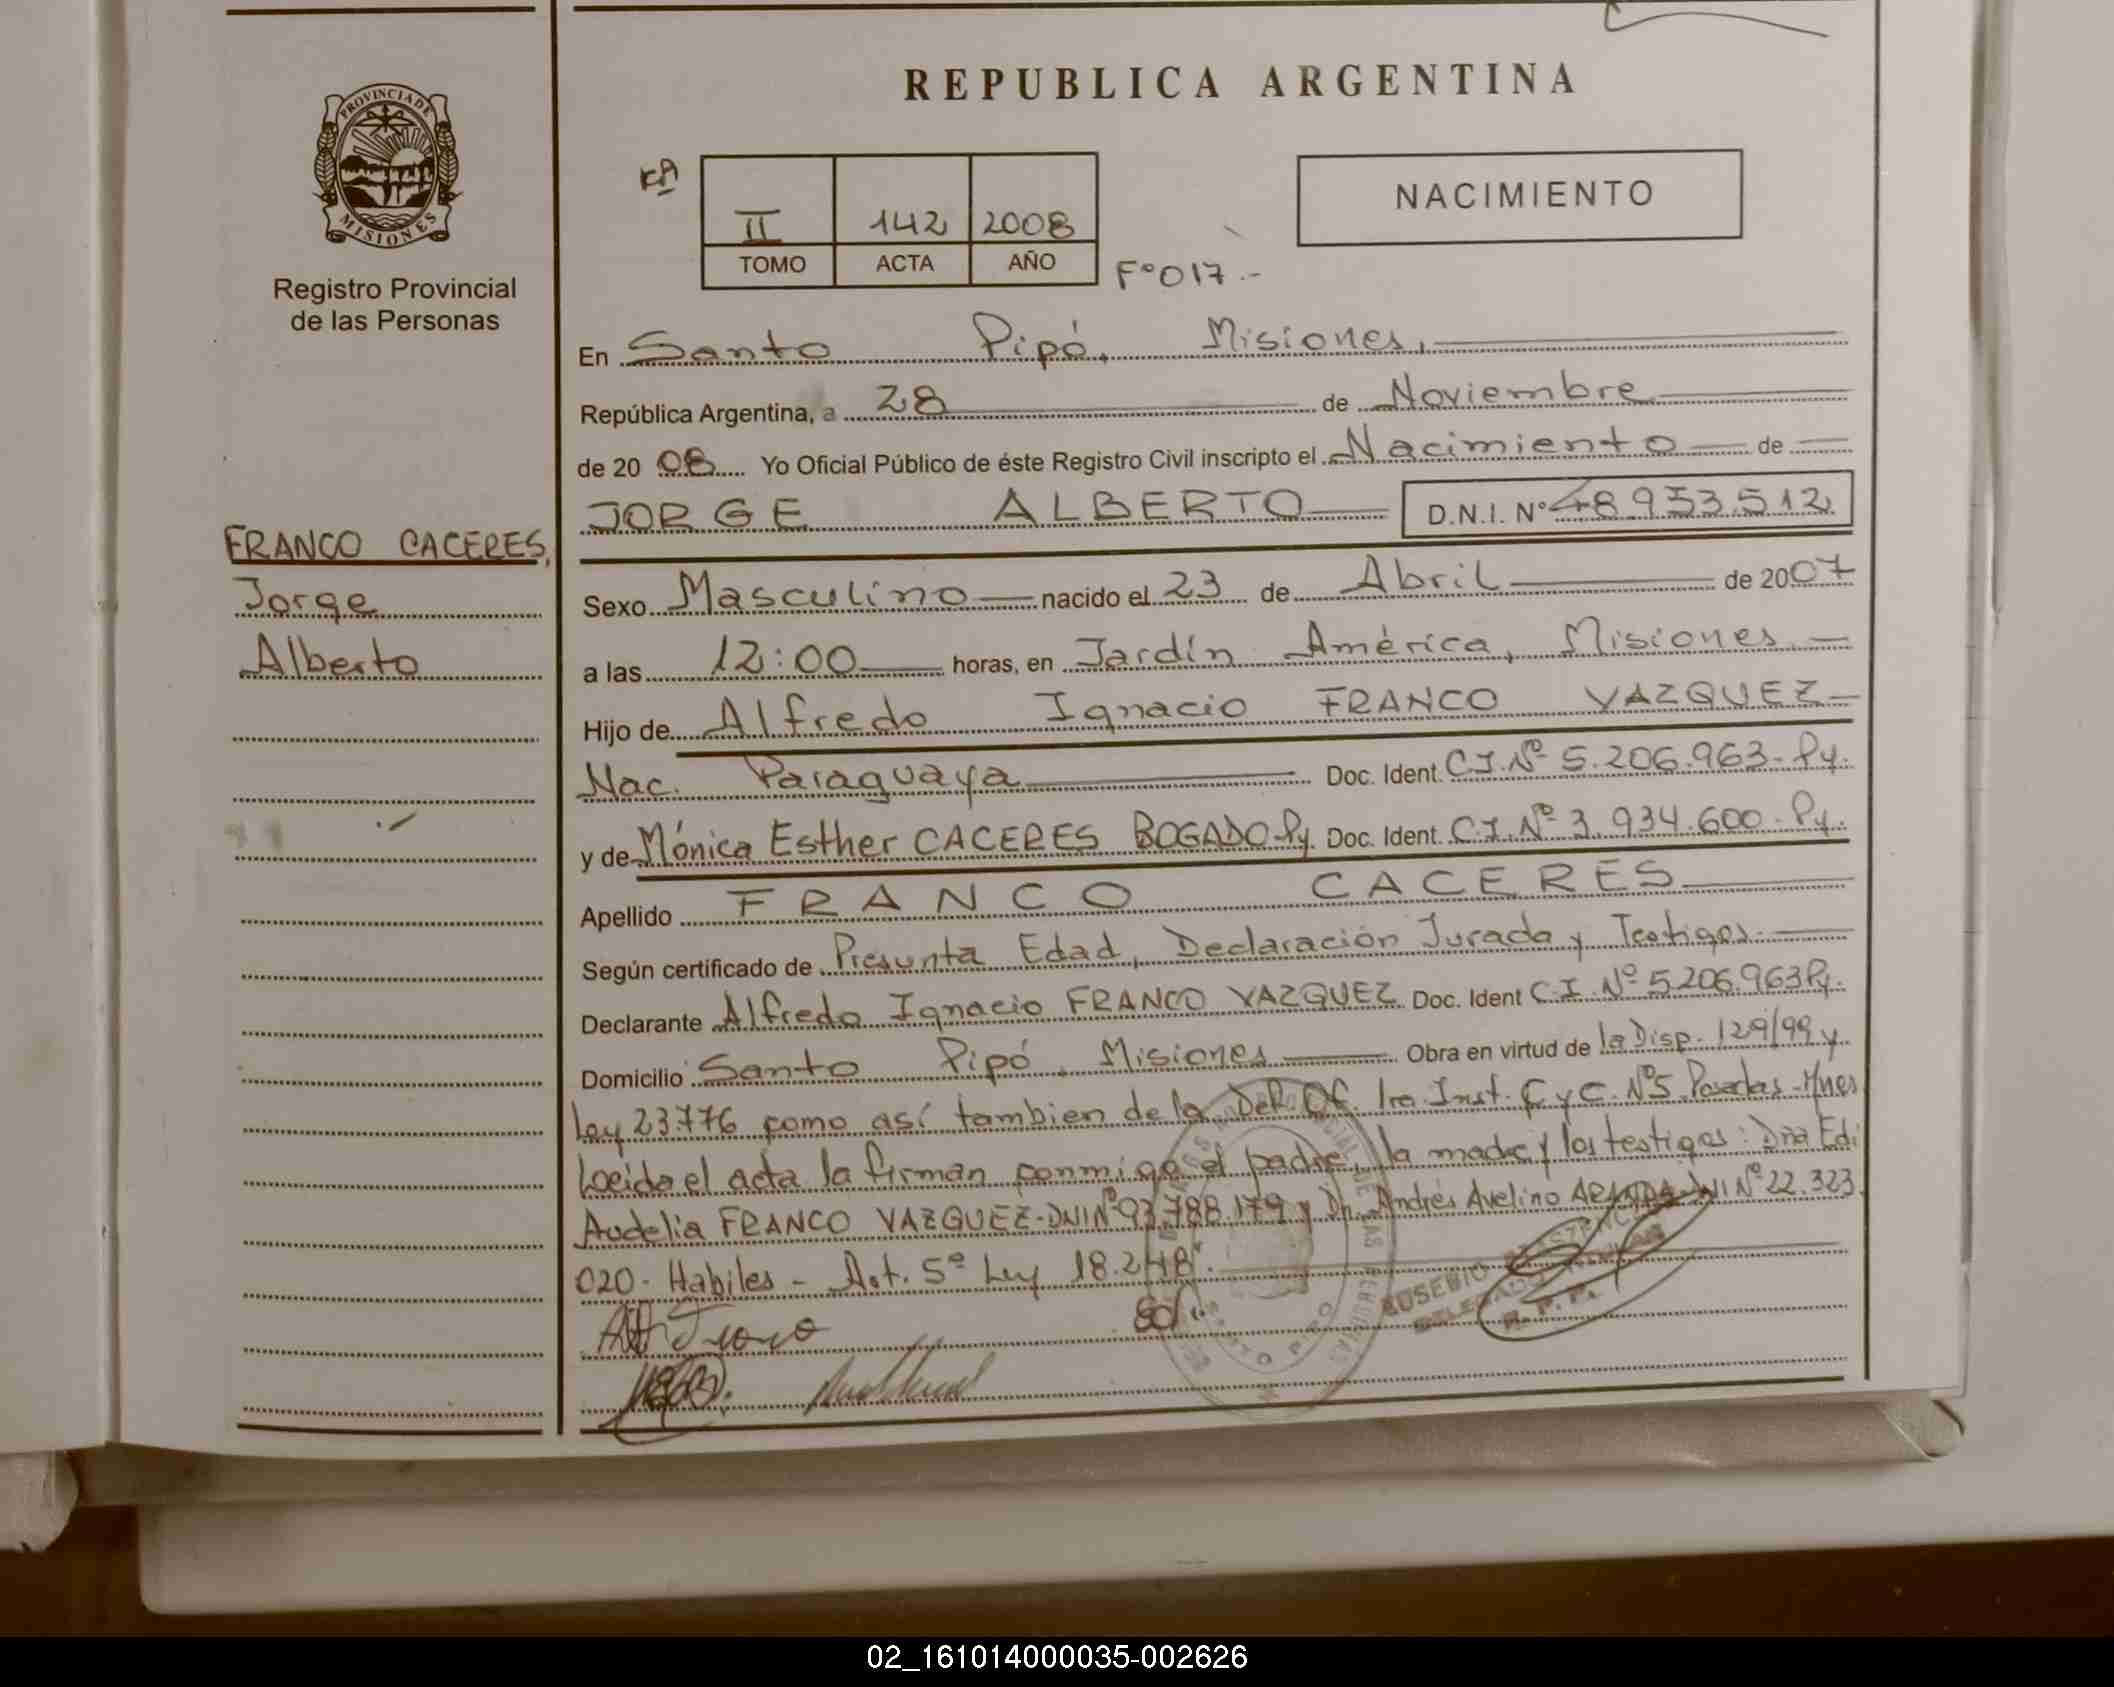 REPUBLICA ARGENTINA
PROVINCIA DE
MISIONES
Registro Provincial
de las Personas
II 142 2008
TOMO ACTA AÑO
Fº 017.-
NACIMIENTO
En Santo Pipó, Misiones,
República Argentina, a 28 de Noviembre
de 20 08 Yo Oficial Público de éste Registro Civil inscripto el Nacimiento de
JORGE ALBERTO D.N.I. Nº 48.953.512
FRANCO CACERES,
Jorge
Alberto
Sexo Masculino nacido el 23 de Abril de 2007
a las 12:00 horas, en Jardín América, Misiones
Hijo de Alfredo Ignacio FRANCO VAZQUEZ
Nac. Paraguaya Doc. Ident. C.I. Nº 5.206.963- Py.
y de Mónica Esther CACERES BOGADO-Py. Doc. Ident. C.I. Nº 3.934.600- Py.
Apellido FRANCO CACERES
Según certificado de Presunta Edad, Declaración Jurada y Testigos
Declarante Alfredo Ignacio FRANCO VAZQUEZ Doc. Ident C.I. Nº 5.206.963 Py.
Domicilio Santo Pipó, Misiones Obra en virtud de la Disp. 129/99 y
Ley 23.776 como así tambien de la Def. Of. 1ra Inst. C y C. Nº 5 Posadas-Mnes
Leída el acta la firman conmigo el padre, la madre y los testigos: Dña Edi
Audelia FRANCO VAZQUEZ-DNI Nº 93.788.179 y Dn. Andrés Avelino DNI Nº 22.323.
020- Habiles - Art. 5º Ley 18.248.
EUSEBIO
DELEGADO
R. P. P.
SANTO PIPO
02_161014000035-002626